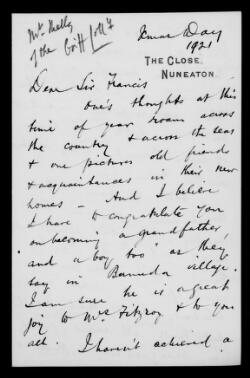 Mr. Kelly
of the Griff Coll.y
Xmas Day
1921
THE CLOSE,
NUNEATON.
Dear Sir Francis
One's thoughts at this
time of year roam across
the country & across the seas
& one pictures old friends
& acquaintances in their new
homes – And I believe
I have to congratulate you
on becoming a grandfather,
"and a boy too" as they
say in village.
I am sure he is a great
joy to Mrs Fitzroy & to you
all. I haven't achieved a